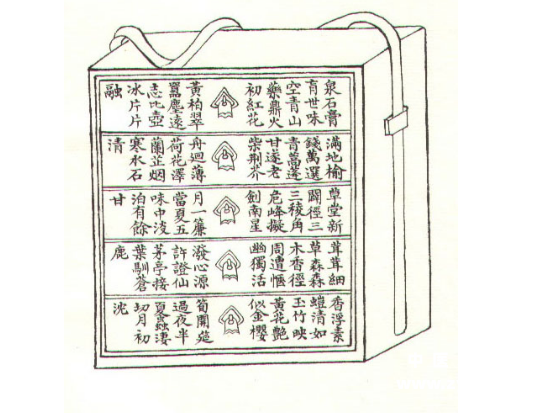 泉石膏
肓世味
空青山
藥鼎火
初紅花
黃柏翠
囂塵遠
志比壺
冰片片
融
滿地榆
錢萬選
青蒿
甘遂老
柴荊芥
舟迴薄
荷花澤
蘭芷烟
寒水石
清
草堂新
闢徑三
三稜角
危峰擬
劍南星
月一簾
當夏五
味中淡
泊有餘
甘
茸茸細
草森森
木香徑
周遭愜
幽獨活
潑心源
許證仙
茅亭接
葉馴蒼
鹿
香浮素
螘清如
玉竹映
黃花艷
似金櫻
筍開筵
過夜半
夏蟲淒
切月初
沈